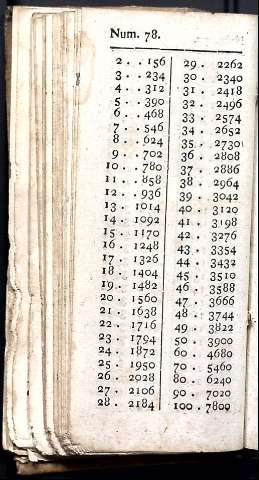 Num. 78.
2 . . 156
3 . . 234
4 . . 312
5 . . 390
6 . . 468
7 . . 546
8 . . 624
9 . . 702
10 . . 780
11 . . 858
12 . . 936
13 . 1014
14 . 1092
15 . 1170
16 . 1248
17 . 1326
18 . 1404
19 . 1482
20 . 1560
21 . 1638
22 . 1716
23 . 1794
24 . 1872
25 . 1950
26 . 2028
27 . 2106
28 . 2184
29 . 2262
30 . 2340
31 . 2418
32 . 2496
33 . 2574
34 . 2652
35 . 2730
36 . 2808
37 . 2886
38 . 2964
39 . 3042
40 . 3120
41 . 3198
42 . 3276
43 . 3354
44 . 3432
45 . 3510
46 . 3588
47 . 3666
48 . 3744
49 . 3822
50 . 3900
60 . 4680
70 . 5460
80 . 6240
90 . 7020
100 . 7800